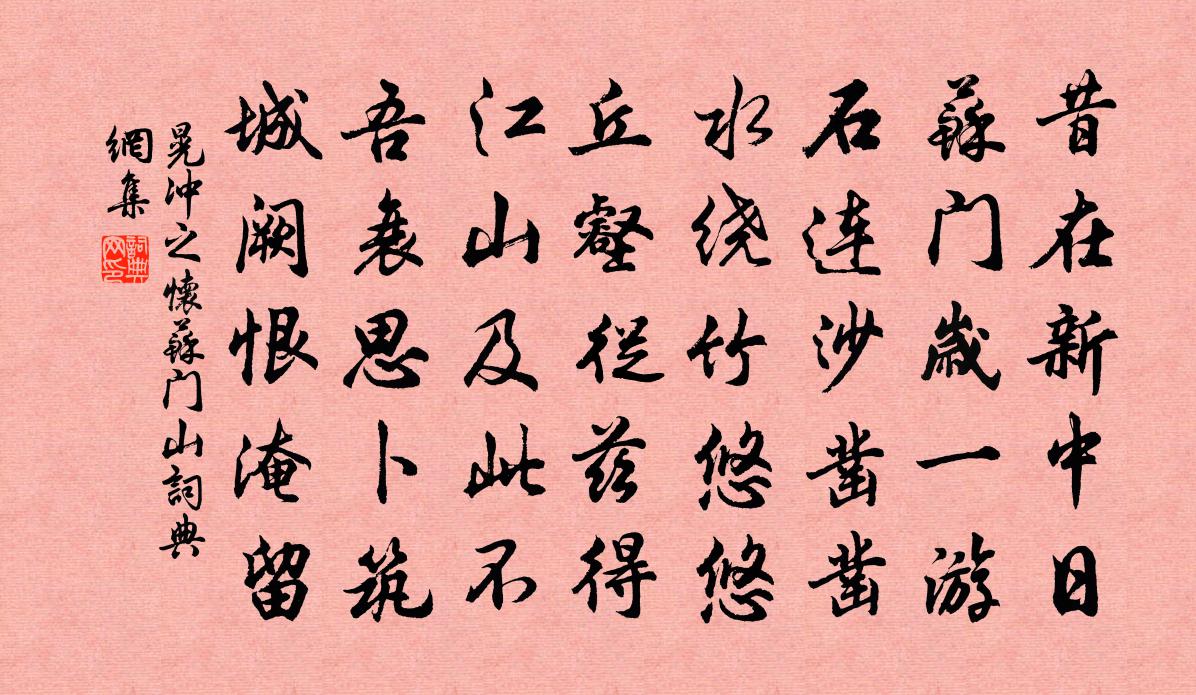 昔在新中日
蘇门歲一游
石连沙凿凿
水绕竹悠悠
丘壑從茲得
江山及此不
吾衰思卜筑
城阙恨淹留
晁冲之懷蘇门山詞典
網集
詞典
网印